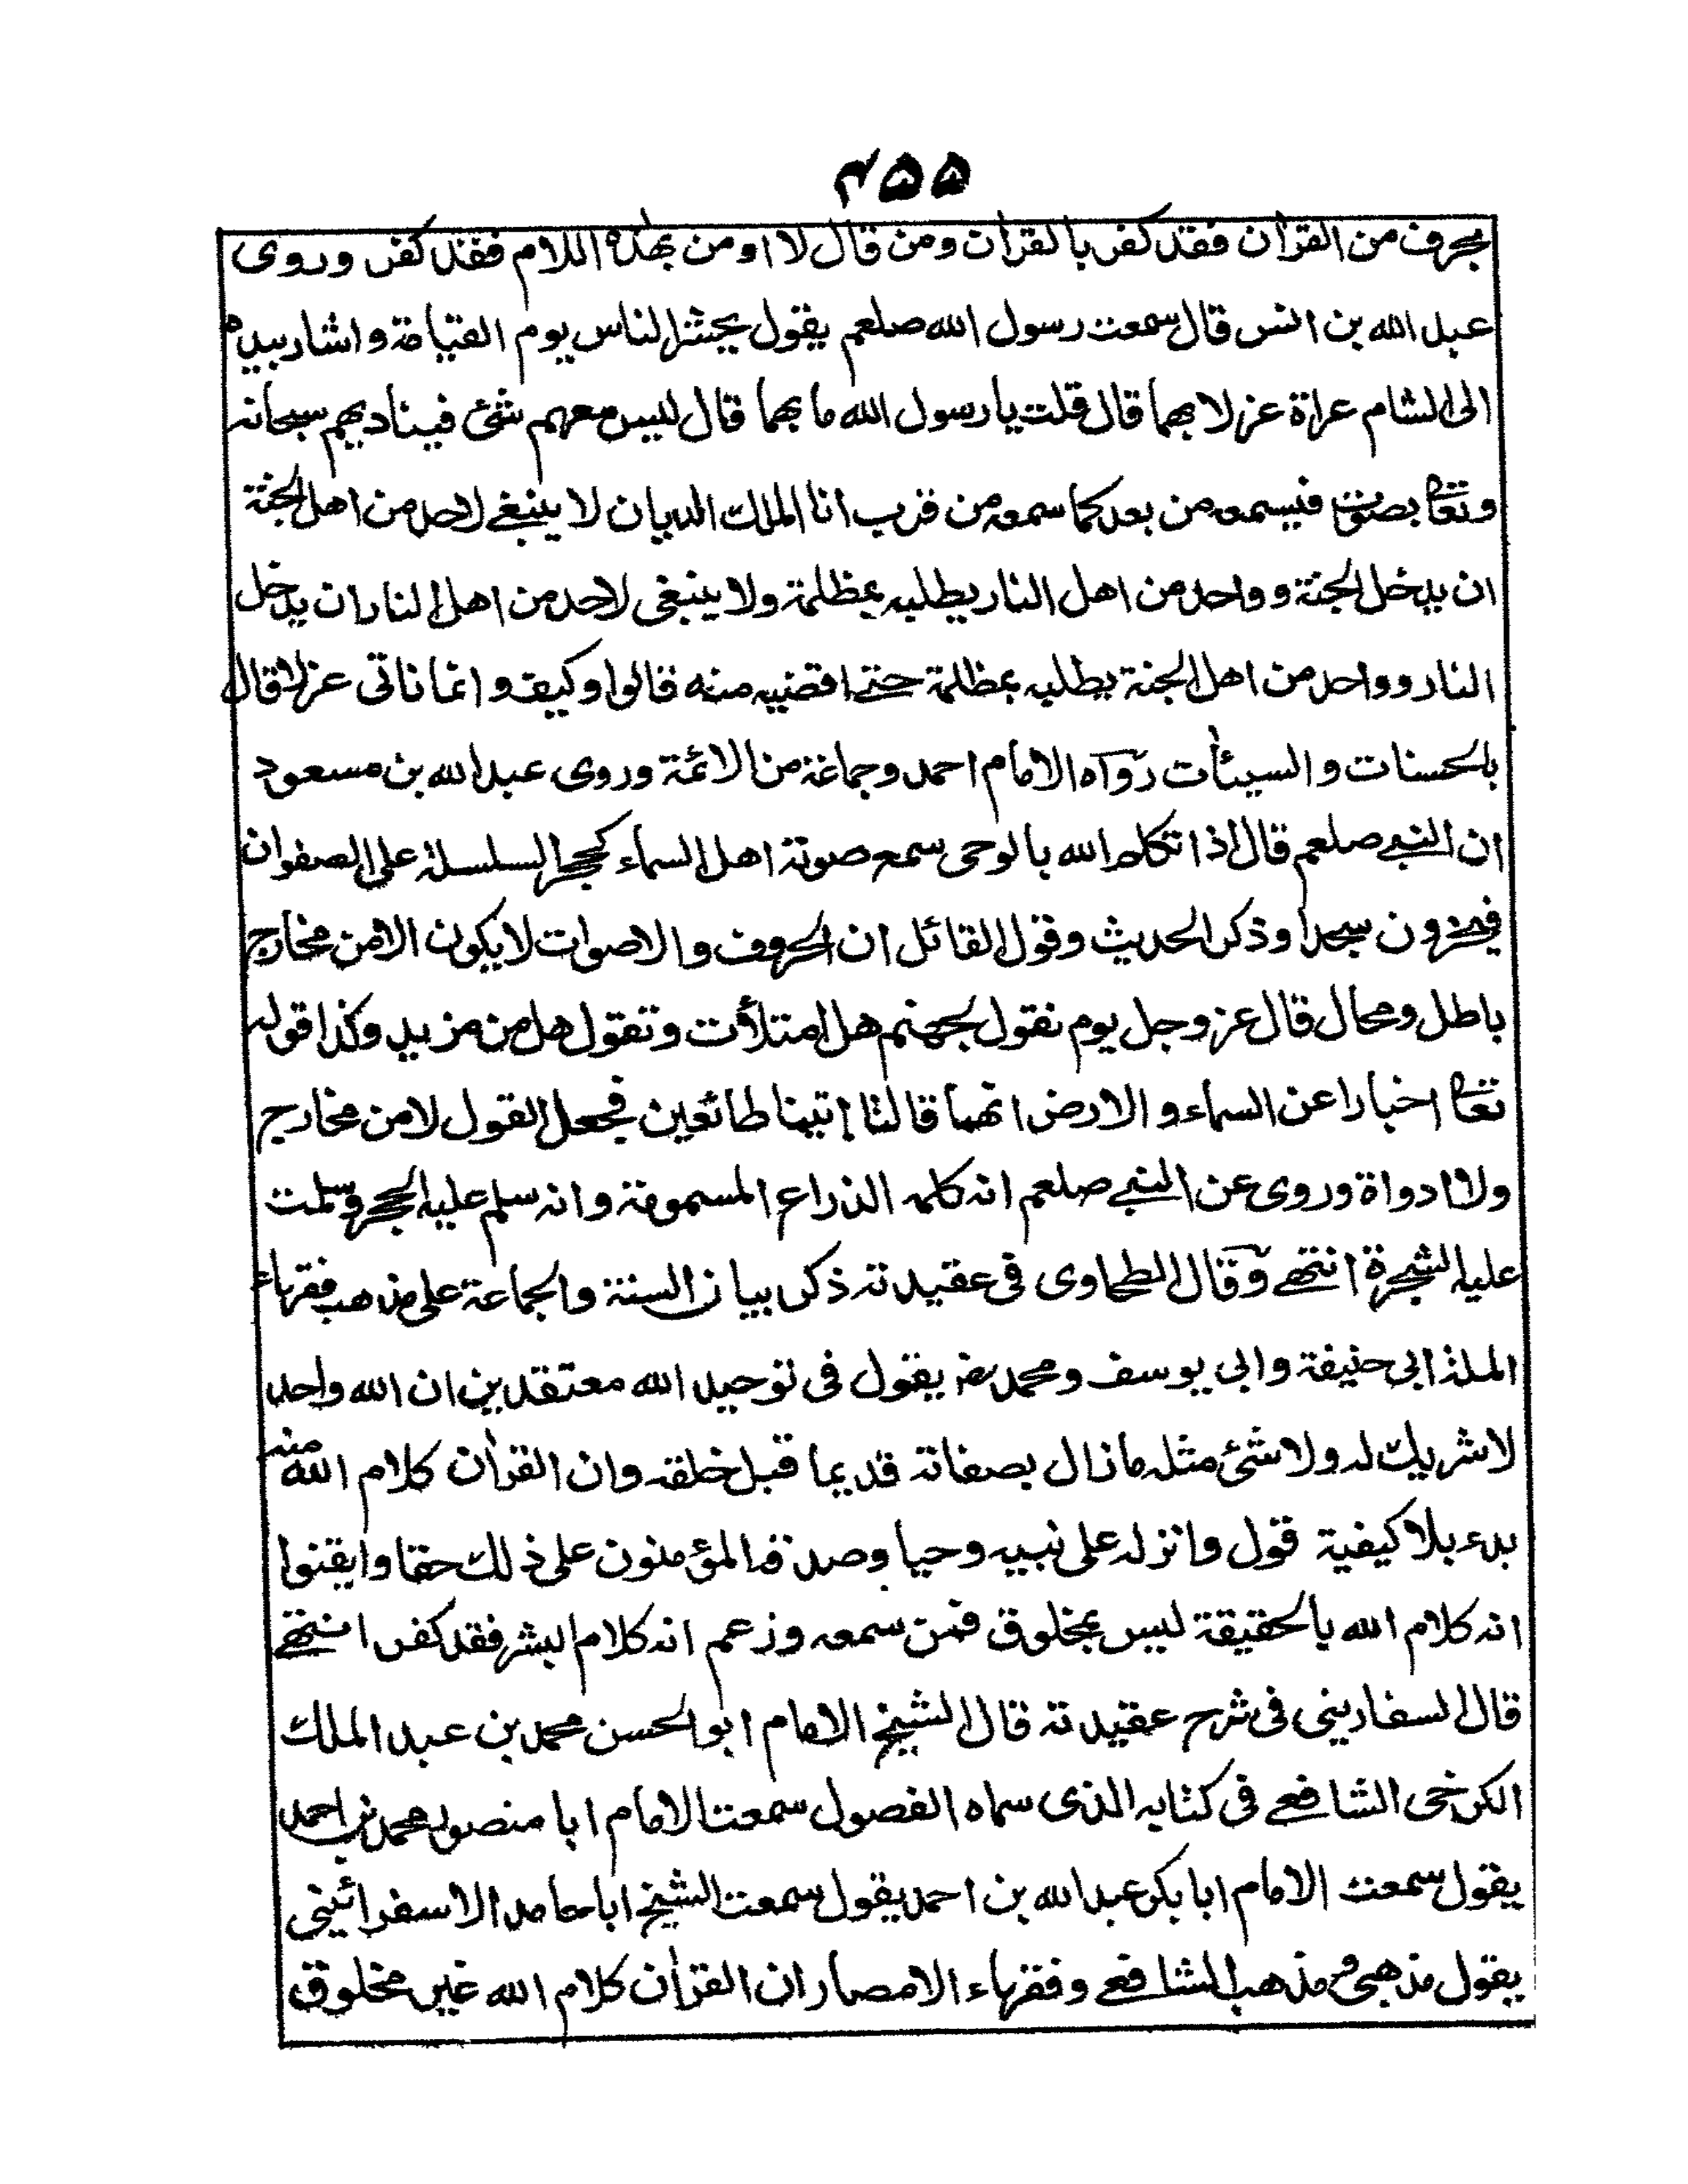 ۴۵۵
بحرف من القراٰن فقد كفر بالقراٰن ومن قال لا اومن بهٰذه اللام فقد كفر وروى
عبد الله بن انس قال سمعت رسول الله صلعم يقول يحشر الناس يوم القيامة واشار بيده
الى الشام عراة عزلا بهما قال قلت يا رسول الله ما بهما قال ليس معهم شئ فيناديهم سبحانه
وتعا بصوت فيسمعه من بعد كما سمعه من قرب انا الملك الديان لا ينبغي لاحد من اهل الجنة
ان يدخل الجنة وواحد من اهل النار يطلبه بمظلمة ولا ينبغى لاحد من اهل النار ان يدخل
النار وواحد من اهل الجنة يطلبه بمظلمة حتے اقضيه منه قالوا وكيف وانما ناتى عزلا قال
بالحسنات والسيئات رواه الامام احمد وجماعة من الائمة وروى عبد الله بن مسعود
ان النبے صلعم قال اذا تكلم الله بالوحى سمع صوته اهل السماء كجر السلسلة على الصفوان
فيخرون سجدا وذكر الحديث وقول القائل ان الحروف والاصوات لا يكون الا من مخارج
باطل ومحال قال عز وجل يوم نقول لجهنم هل امتلأت وتقول هل من مزيد وكذا قوله
تعا اخبارا عن السماء والارض انهما قالتا اتينا طائعين فجعل القول لا من مخارج
ولا ادواة وروى عن النبے صلعم انه كلمه الذراع المسمومة وانه سلم عليه الحجر وسلمت
عليه الشجرة انتهے وقال الطحاوى فى عقيدته ذكر بيان السنة والجماعة على مذهب فقهاء
الملة ابى حنيفة وابى يوسف ومحمد رض يقول فى توحيد الله معتقدين ان الله واحد
لا شريك له ولا شئ مثله ما زال بصفاته قديما قبل خلقه وان القراٰن كلام الله منه
بدء بلا كيفية قول وانزله على نبيه وحيا وصدقه المؤمنون على ذلك حقا وايقنوا
انه كلام الله بالحقيقة ليس بمخلوق فمن سمعه وزعم انه كلام البشر فقد كفر انتهے
قال السفارينى فى شرح عقيدته قال الشيخ الامام ابو الحسن محمد بن عبد الملك
الكرخى الشافعے فى كتابه الذى سماه الفصول سمعت الامام ابا منصور محمد بن احمد
يقول سمعت الامام ابا بكر عبد الله بن احمد يقول سمعت الشيخ ابا حامد الاسفرائينى
يقول مذهبى ومذهب الشافعے وفقهاء الامصار ان القراٰن كلام الله غير مخلوق